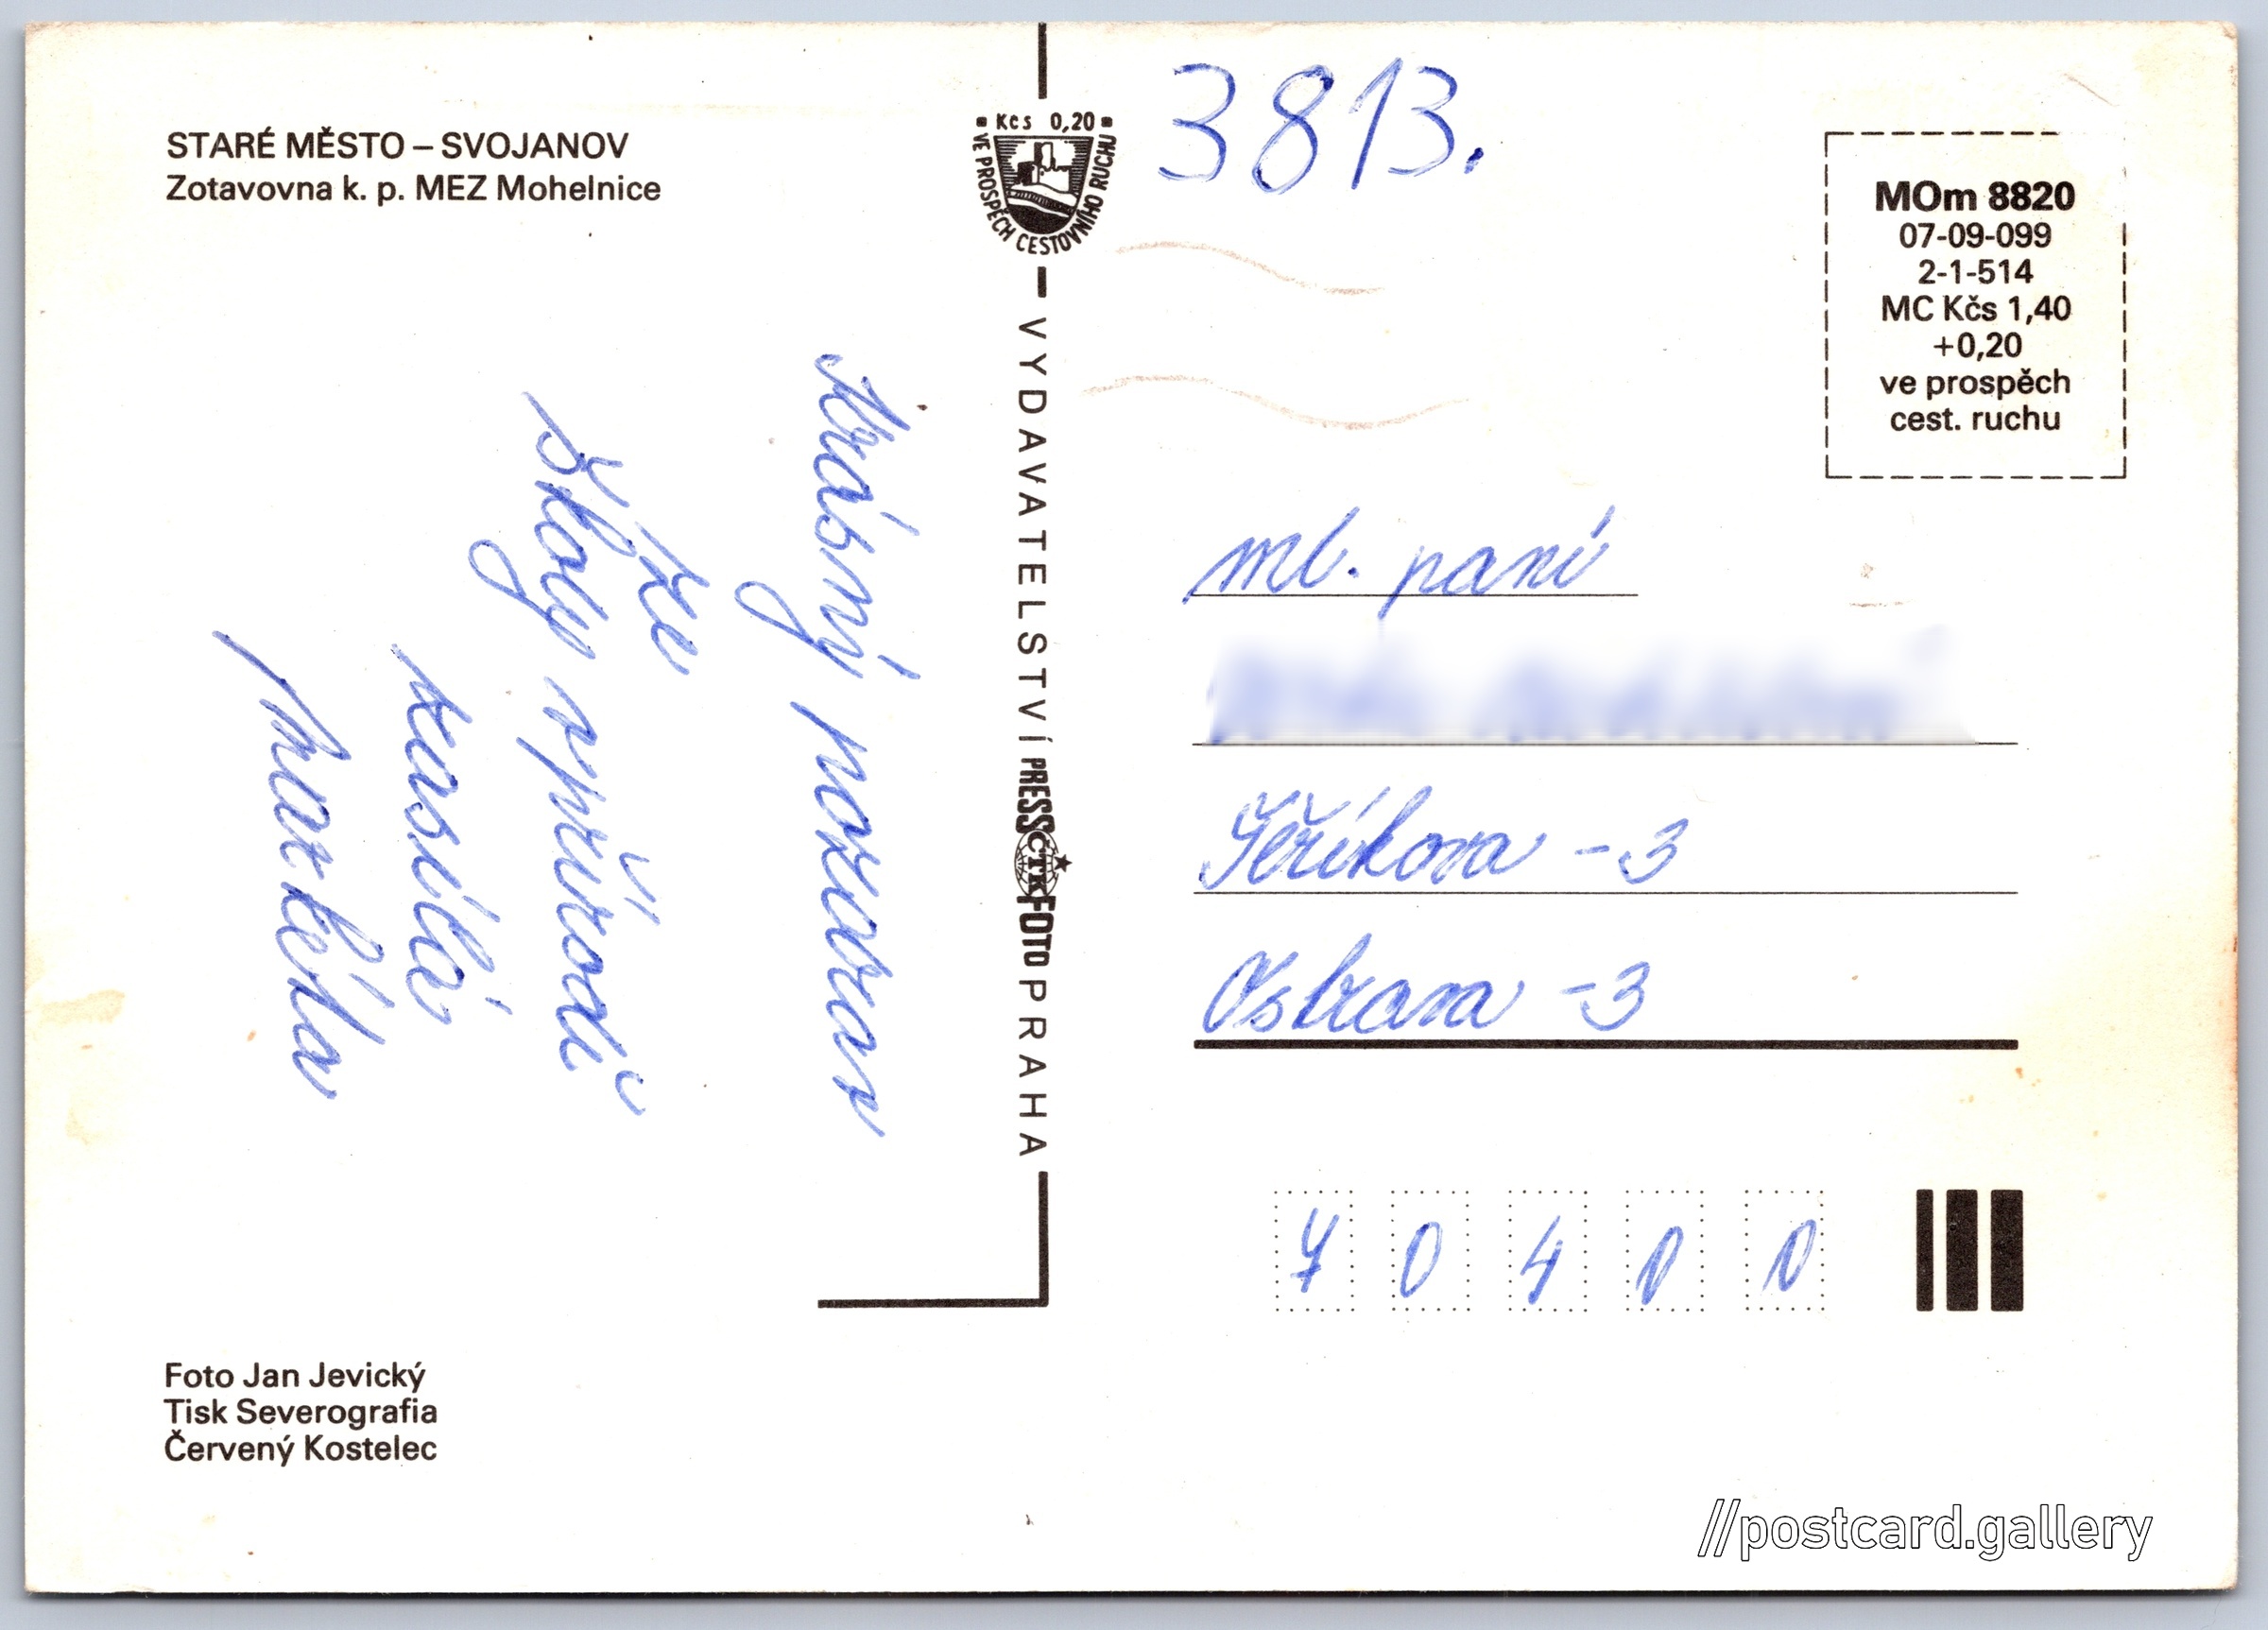 STARÉ MĚSTO – SVOJANOV
Zotavovna k. p. MEZ Mohelnice
Krásný pozdrav
ze
školy v přírodě
zasílá
Markéta
Foto Jan Jevický
Tisk Severografia
Červený Kostelec
Kčs 0,20
VE PROSPĚCH CESTOVNÍHO RUCHU
VYDAVATELSTVÍ PRESSFOTO PRAHA
ČTK
3813.
MOm 8820
07-09-099
2-1-514
MC Kčs 1,40
+0,20
ve prospěch
cest. ruchu
ml. paní
Jeříkova -3
Ostrava -3
70400
//postcard.gallery